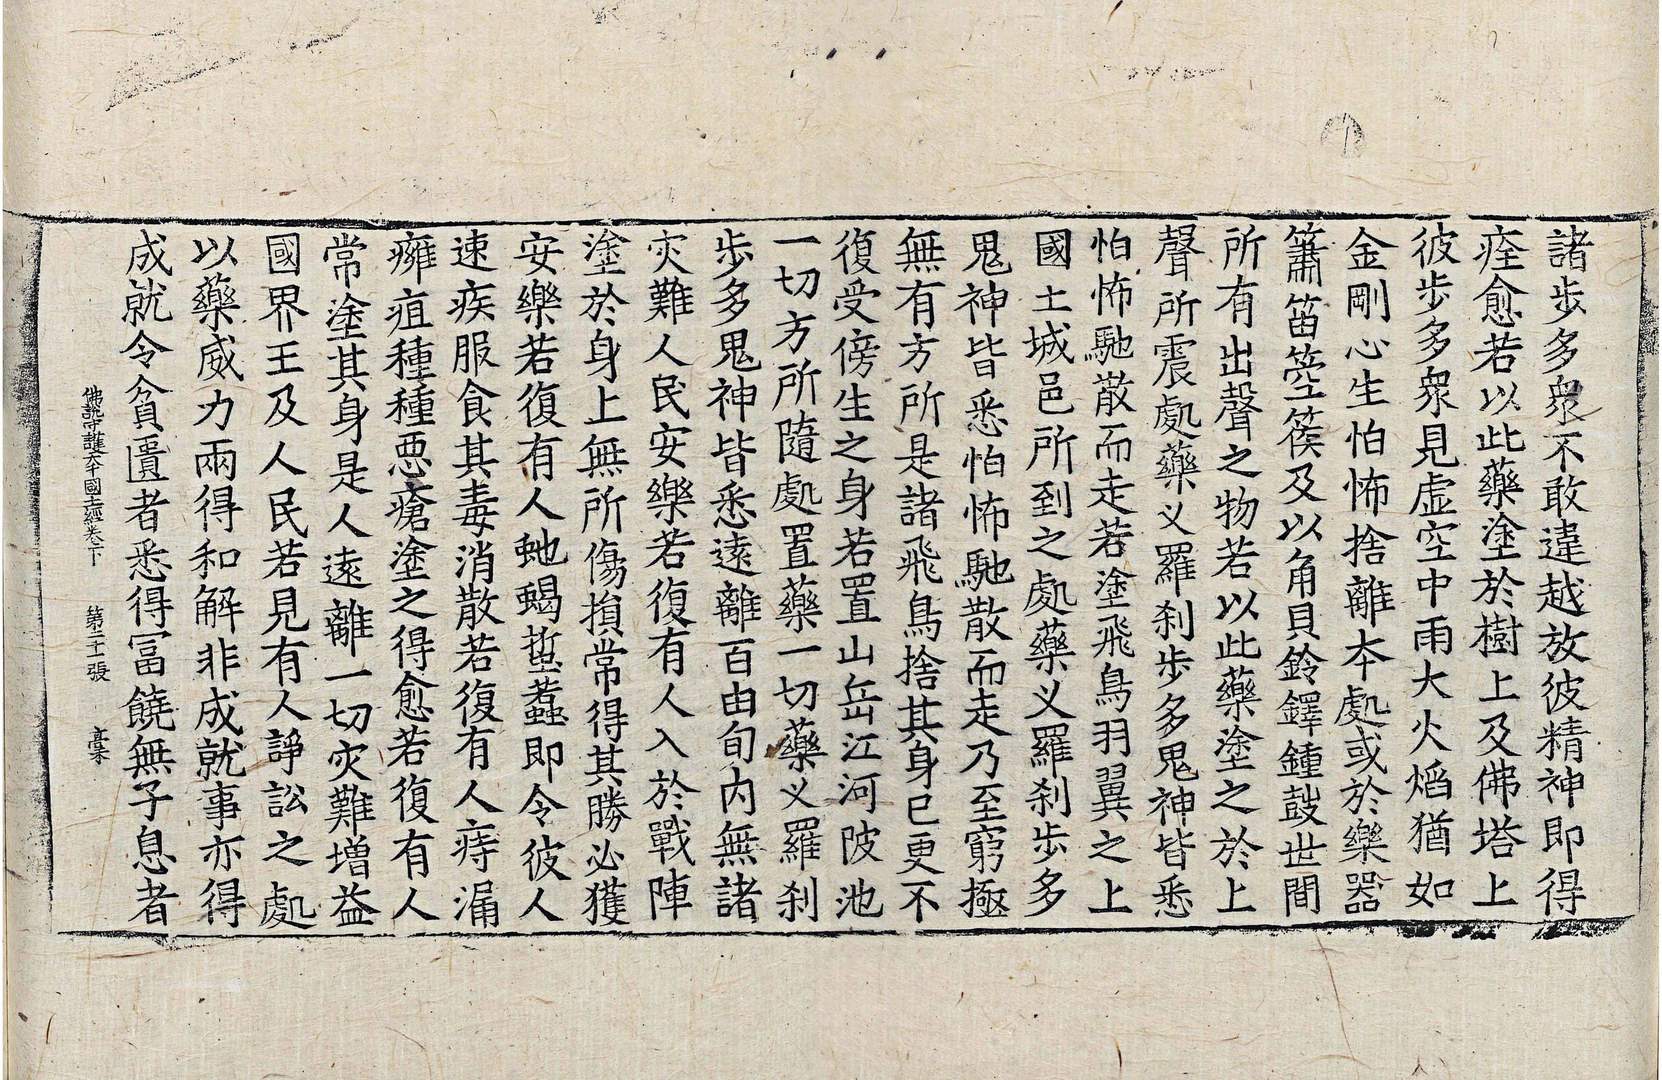 諸步多衆不敢違越放彼精神即得
痊愈若以此藥塗於樹上及佛塔上
彼步多衆見虛空中雨大火焰猶如
金剛心生怕怖捨離本處或於樂器
簫笛箜篌及以角貝鈴鐸鍾鼓世間
所有出聲之物若以此藥塗之於上
聲所震處藥义羅刹步多鬼神皆悉
怕怖馳散而走若塗飛鳥羽翼之上
國土城邑所到之處藥义羅刹步多
鬼神皆悉怕怖馳散而走乃至窮極
無有方所是諸飛鳥捨其身已更不
復受傍生之身若置山岳江河陂池
一切方所隨處置藥一切藥义羅刹
步多鬼神皆悉遠離百由旬内無諸
灾難人民安樂若復有人入於戰陣
塗於身上無所傷損常得其勝必獲
安樂若復有人虵蝎蜇蠚即令彼人
速疾服食其毒消散若復有人痔漏
癰疽種種惡瘡塗之得愈若復有人
常塗其身是人遠離一切灾難增益
國界王及人民若見有人諍訟之處
以藥威力兩得和解非成就事亦得
成就令貧匱者悉得冨饒無子息者
佛說守護大千國土經卷下　第二十張